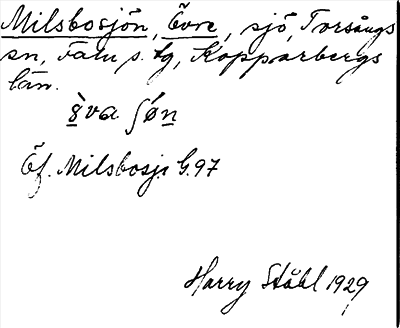 Milsbosjön, Övre, sjö, Torsångs
sn, Falu s. tg, Kopparbergs
län.
Öf. Milsbosjö G.97
Harry Ståhl 1929